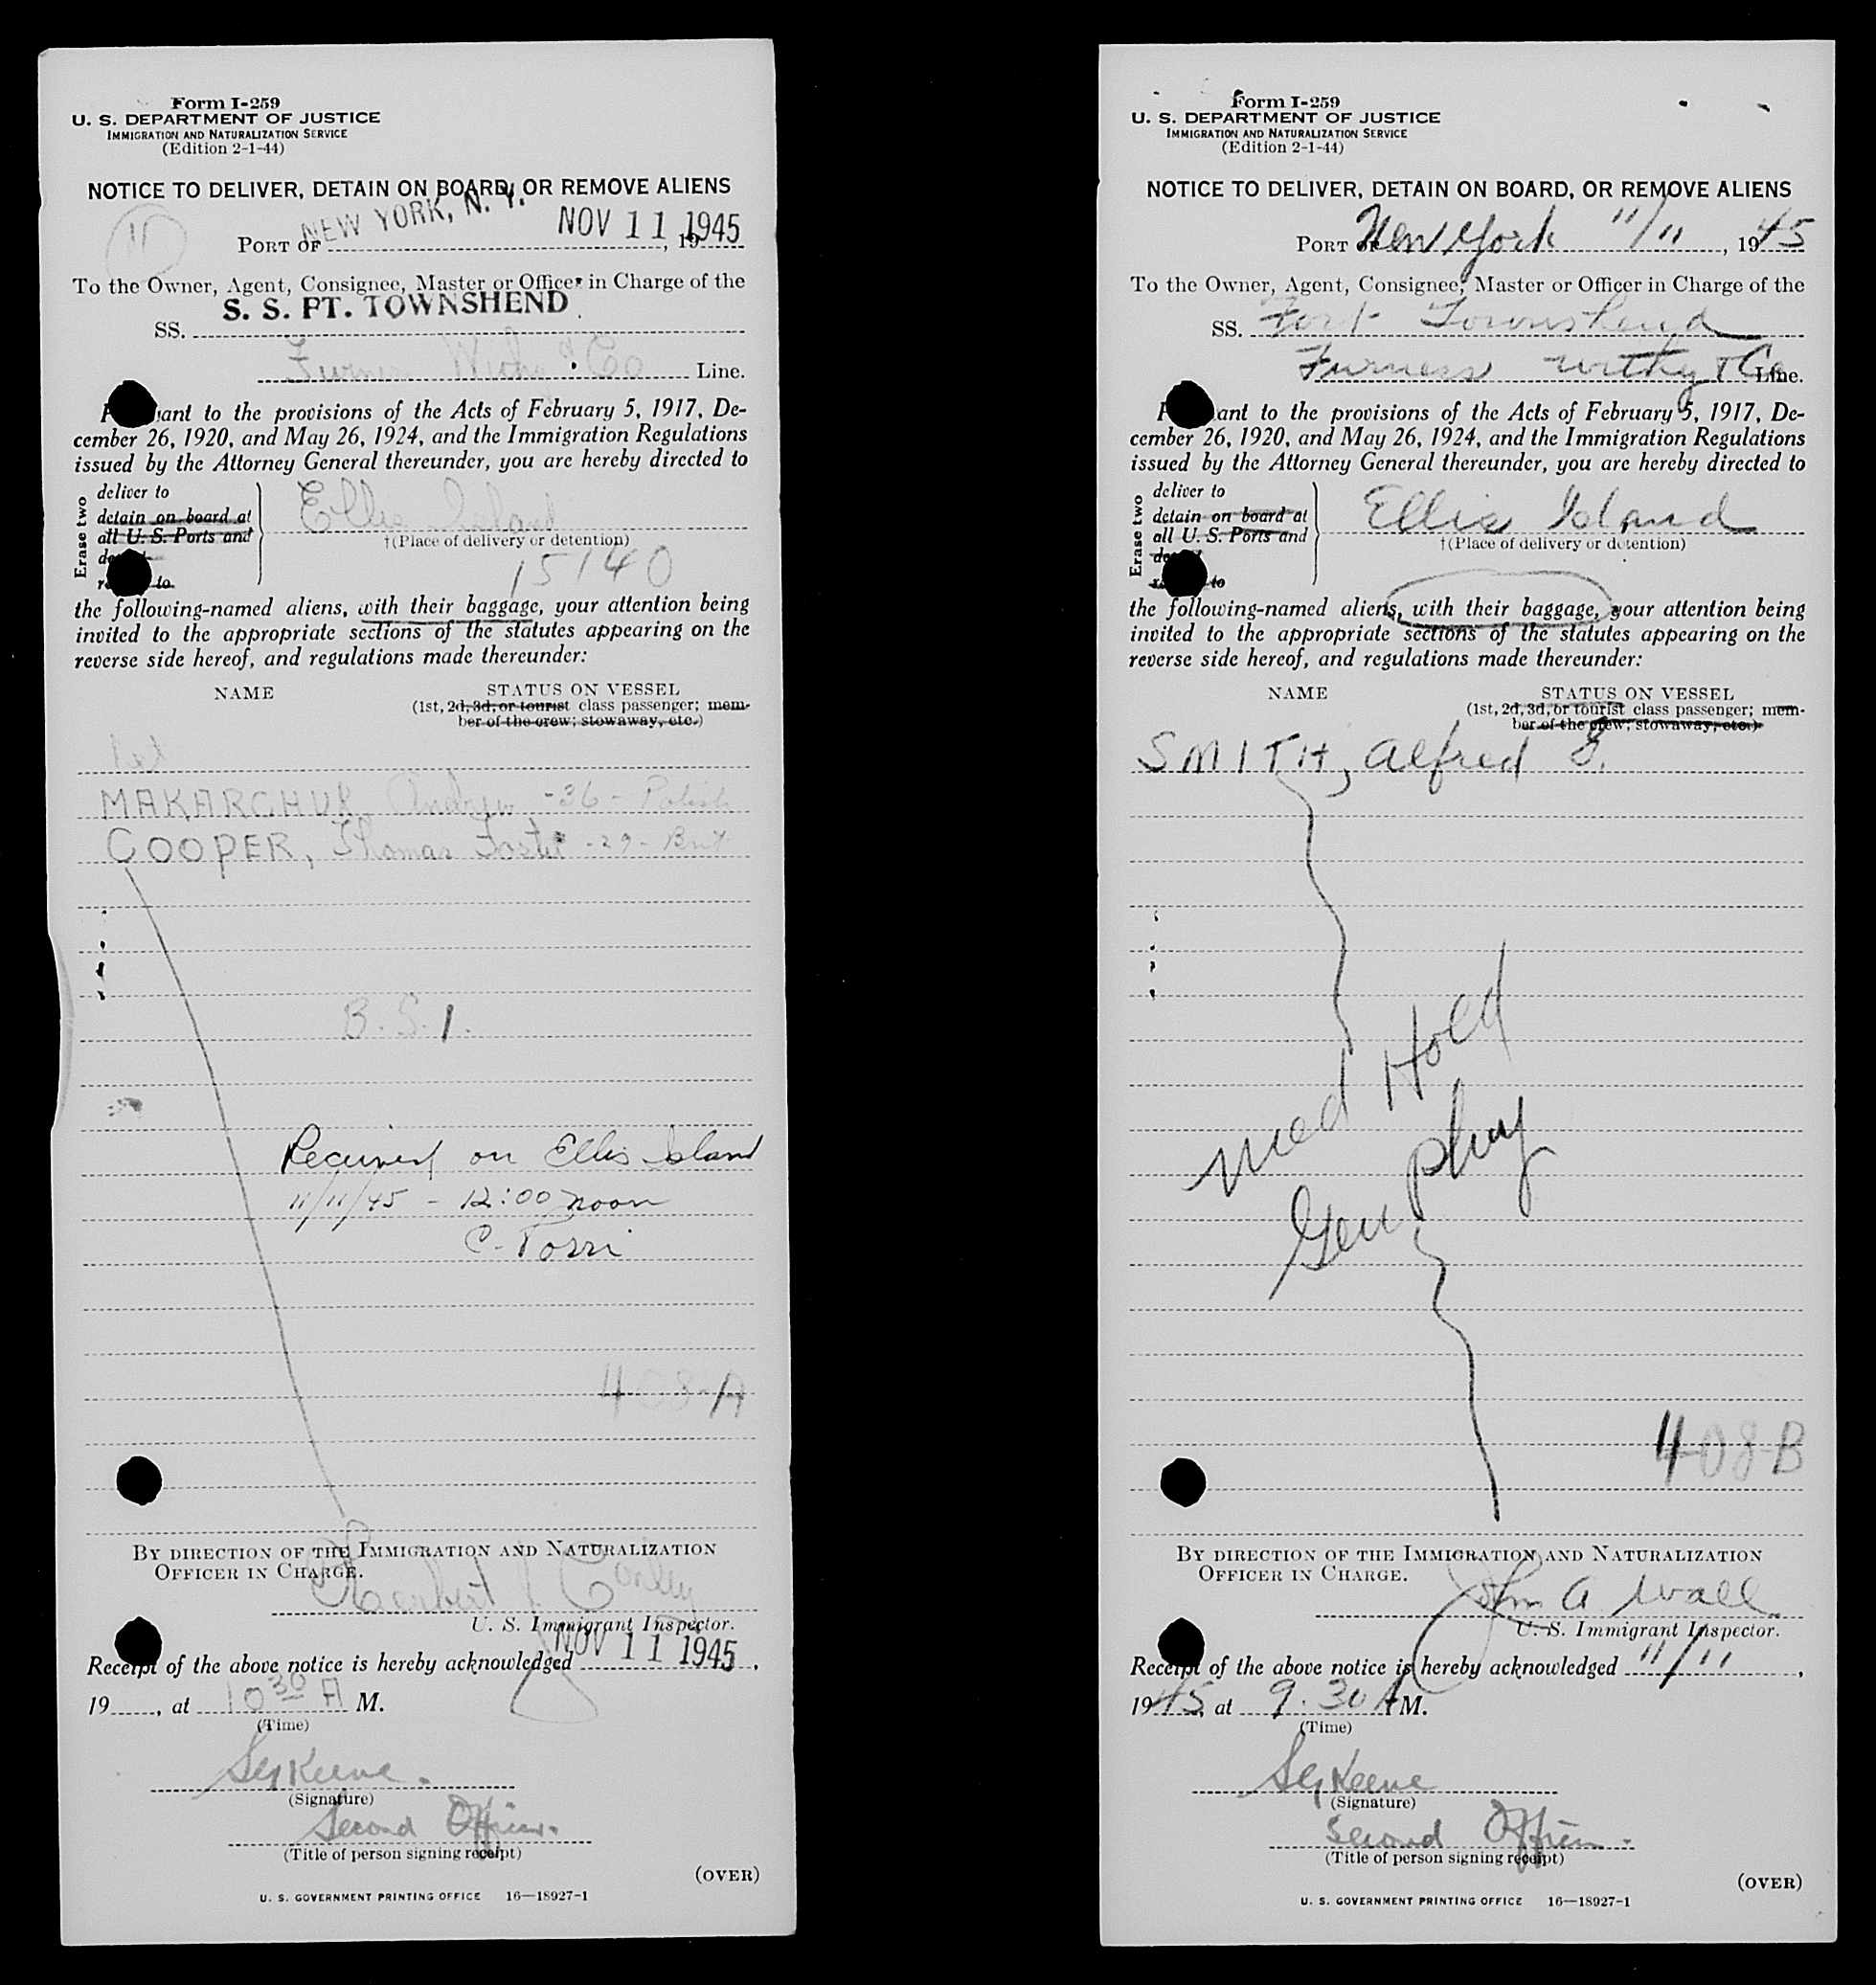 Form I-259
U. S. DEPARTMENT OF JUSTICE
IMMIGRATION AND NATURALIZATION SERVICE
(Edition 2-1-44)
NOTICE TO DELIVER, DETAIN ON BOARD, OR REMOVE ALIENS
11
PORT OF NEW YORK, N. Y. NOV 11 1945, 19
To the Owner, Agent, Consignee, Master or Officer in Charge of the
SS. S. S. FT. TOWNSHEND
Furness Withy & Co Line.
Pursuant to the provisions of the Acts of February 5, 1917, De-
cember 26, 1920, and May 26, 1924, and the Immigration Regulations
issued by the Attorney General thereunder, you are hereby directed to
Erase two
deliver to
detain on board at
all U. S. Ports and
to
Ellis Island
†(Place of delivery or detention)
15140
the following-named aliens, with their baggage, your attention being
invited to the appropriate sections of the statutes appearing on the
reverse side hereof, and regulations made thereunder:
NAME STATUS ON VESSEL
(1st, 2d, 3d, or tourist class passenger; mem-
ber of the crew; stowaway, etc.)
MAKARCHUK Andrew -36- Polish
COOPER, Thomas Foster -29- Brit
B.S.I.
Received on Ellis Island
11/11/45 - 12:00 noon
408-A
BY DIRECTION OF THE IMMIGRATION AND NATURALIZATION
OFFICER IN CHARGE.
Herbert J Conley
U. S. Immigrant Inspector.
Receipt of the above notice is hereby acknowledged NOV 11 1945,
19, at 10 30 A M.
(Time)
Keene.
(Signature)
Second Officer.
(Title of person signing receipt)
(OVER)
U. S. GOVERNMENT PRINTING OFFICE 16—18927-1
Form I-259
U. S. DEPARTMENT OF JUSTICE
IMMIGRATION AND NATURALIZATION SERVICE
(Edition 2-1-44)
NOTICE TO DELIVER, DETAIN ON BOARD, OR REMOVE ALIENS
PORT OF New York 11/11, 1945
To the Owner, Agent, Consignee, Master or Officer in Charge of the
SS. Fort Townshend
Furness Withy & Co Line.
Pursuant to the provisions of the Acts of February 5, 1917, De-
cember 26, 1920, and May 26, 1924, and the Immigration Regulations
issued by the Attorney General thereunder, you are hereby directed to
Erase two
deliver to
detain on board at
all U. S. Ports and
to
Ellis Island
†(Place of delivery or detention)
the following-named aliens, with their baggage, your attention being
invited to the appropriate sections of the statutes appearing on the
reverse side hereof, and regulations made thereunder:
NAME STATUS ON VESSEL
(1st, 2d, 3d, or tourist class passenger; mem-
ber of the crew; stowaway, etc.)
SMITH, Alfred E.
Med Hold
Gen phy
408-B
BY DIRECTION OF THE IMMIGRATION AND NATURALIZATION
OFFICER IN CHARGE.
John A Wall
U. S. Immigrant Inspector.
Receipt of the above notice is hereby acknowledged 11/11,
1945, at 9.30 A M.
(Time)
Keene
(Signature)
Second Officer.
(Title of person signing receipt)
(OVER)
U. S. GOVERNMENT PRINTING OFFICE 16—18927-1